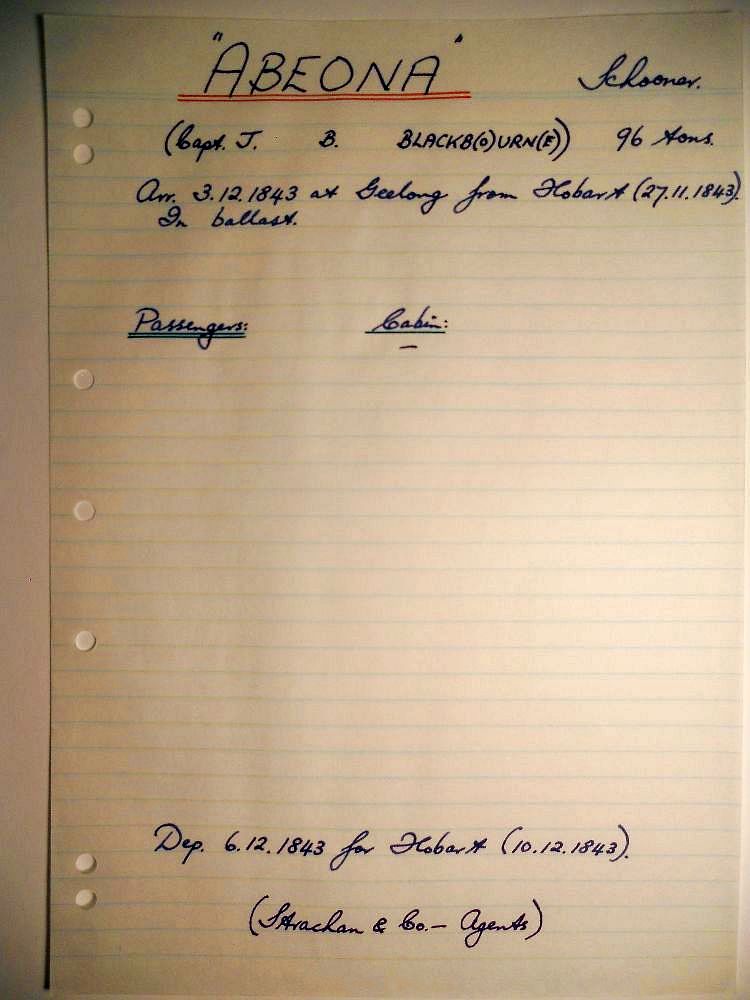 "ABEONA" Schooner.
(Capt. J. B. BLACKB(O)URN(E)) 96 tons.
Arr. 3.12.1843 at Geelong from Hobart (27.11.1843).
In ballast.
Passengers: Cabin:
—
Dep. 6.12.1843 for Hobart (10.12.1843).
(Strachan & Co. — Agents)